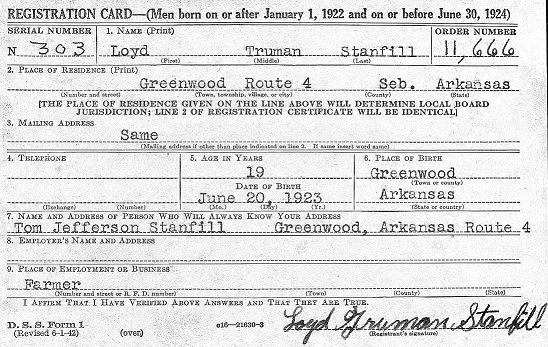 REGISTRATION CARD—(Men born on or after January 1, 1922 and on or before June 30, 1924)
SERIAL NUMBER 1. NAME (Print) ORDER NUMBER
N 303 Loyd Truman Stanfill 11,666
(First) (Middle) (Last)
2. PLACE OF RESIDENCE (Print)
Greenwood Route 4 Seb. Arkansas
(Number and street) (Town, township, village, or city) (County) (State)
[THE PLACE OF RESIDENCE GIVEN ON THE LINE ABOVE WILL DETERMINE LOCAL BOARD
JURISDICTION; LINE 2 OF REGISTRATION CERTIFICATE WILL BE IDENTICAL]
3. MAILING ADDRESS
Same
(Mailing address if other than place indicated on line 2. If same insert word same)
4. TELEPHONE 5. AGE IN YEARS 6. PLACE OF BIRTH
19 Greenwood
DATE OF BIRTH (Town or county)
June 20, 1923 Arkansas
(Exchange) (Number) (Mo.) (Day) (Yr.) (State or country)
7. NAME AND ADDRESS OF PERSON WHO WILL ALWAYS KNOW YOUR ADDRESS
Tom Jefferson Stanfill Greenwood, Arkansas Route 4
8. EMPLOYER'S NAME AND ADDRESS
9. PLACE OF EMPLOYMENT OR BUSINESS
Farmer
(Number and street or R. F. D. number) (Town) (County) (State)
I AFFIRM THAT I HAVE VERIFIED ABOVE ANSWERS AND THAT THEY ARE TRUE.
D. S. S. Form 1 Loyd Truman Stanfill
(Revised 6-1-42) (over) c16—21630-3 (Registrant's signature)